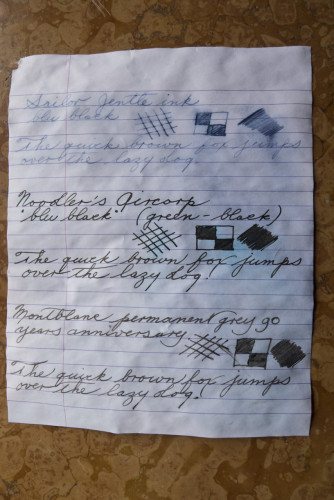 Sailor Jentle ink
blu black
The quick brown fox jumps
over the lazy dog.
Noodler's Aircorp
"blu black" (green-black)
The quick brown fox jumps
over the lazy dog!
Montblanc permanent grey 90
years anniversary
The quick brown fox jumps
over the lazy dog!